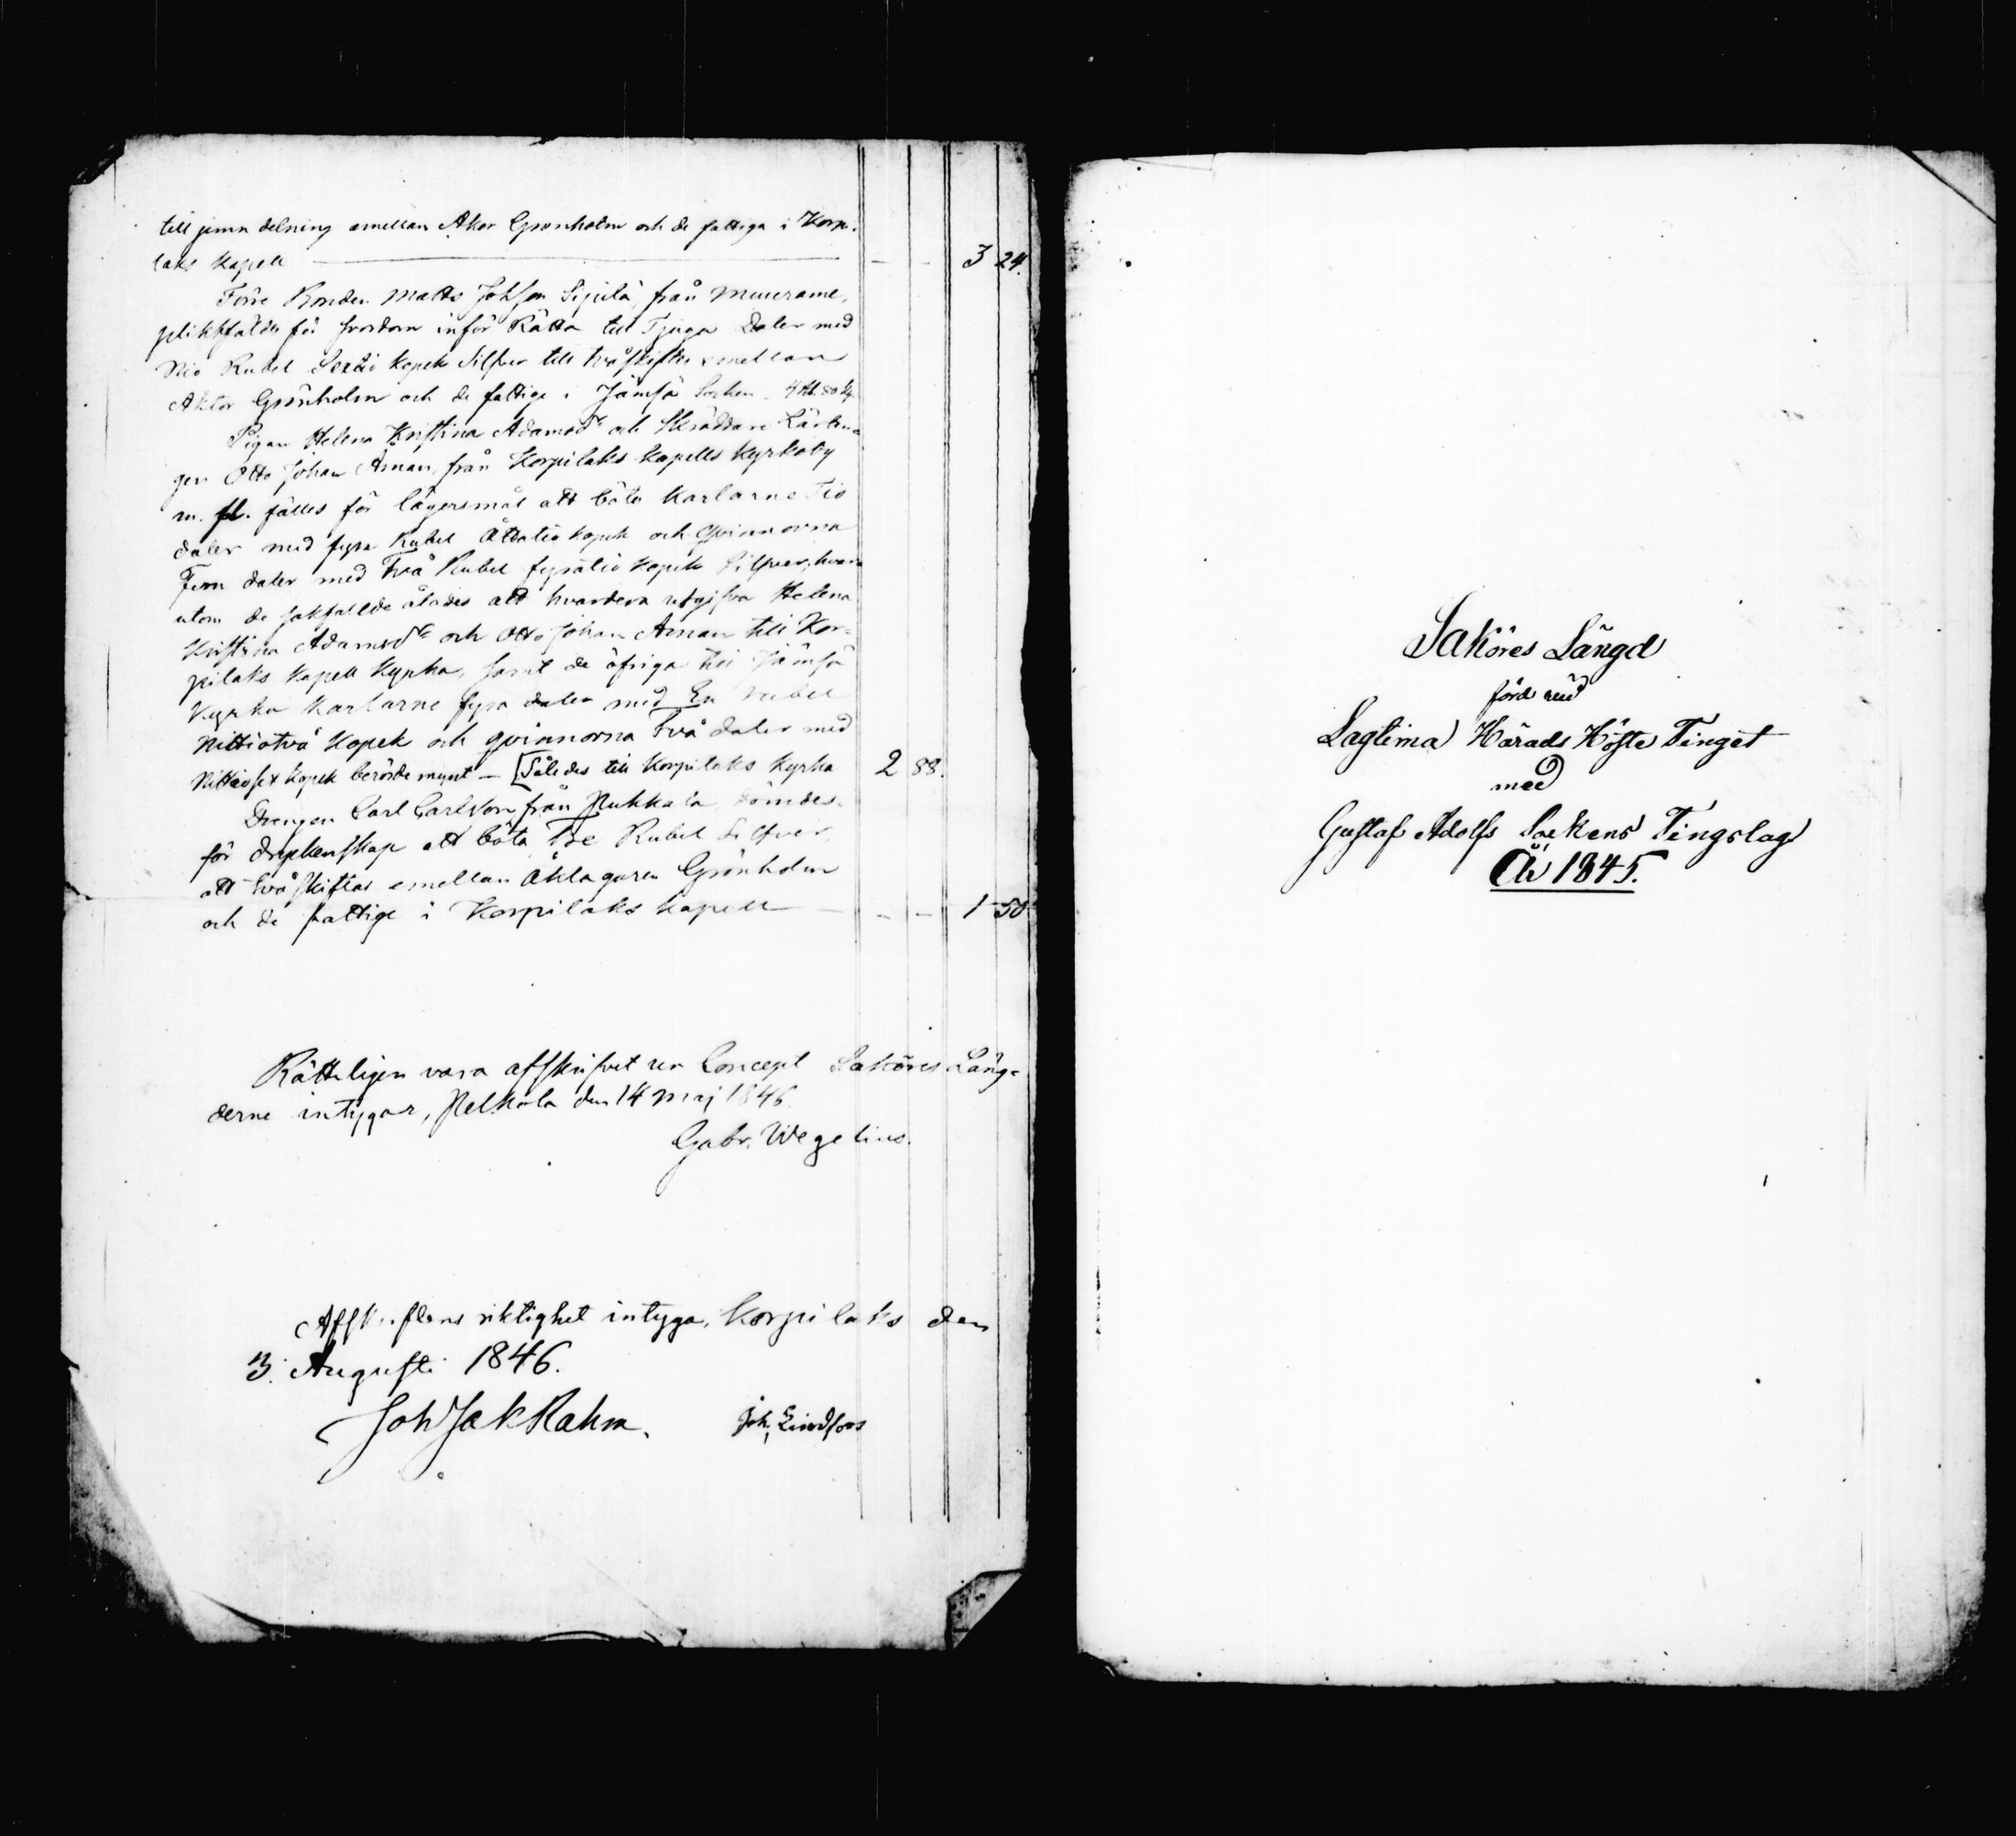 till jemn delning emellan Aktor Grönholm och de fattiga i Korpi-
laks Kapell — — — 3 24.
Förre Bonden Matts Johsson Sipilä, från Muurame,
pliktfäldes för svordom inför Rätta till Tjugo Daler med
Nio Rubel Sextio kopek Silfver till tvåskiftes emellan
Aktor Grönholm och de fattige i Jämsä Socken. 4 Rb. 80 kp.
Pigan Helena Kristina Adamsdr och Skräddare Lärlin-
gen Otto Johan Åman, från Korpilaks Kapells Kyrkoby
m. fl. fälles för lägersmål att böta Karlarne Tio
daler med fyra Rubel Åttatio kopek och Qvinnorna
Fem daler med Två Rubel fyratio kopek Silfver, hvar-
utom de sakfällde ålades att hvardera utgifva Helena
Kristina Adamsdr och Otto Johan Åman till Kor-
pilaks Kapell Kyrka, samt de öfriga till Jämsä
Kyrka Karlarne fyra daler med En rubel
Nittiotvå Kopek och qvinnorna Två daler med
Nittiosex kopek berörde mynt — [Således till Korpilaks Kyrka 2 88.
Drengen Carl Carlsson, från Hukkala, dömdes
för dryckenskap att böta Tre Rubel Silfver,
att tvåskiftas emellan Åklagaren Grönholm
och de fattige i Korpilaks Kapell — — — 1 50
Rätteligen vara afskrifvet ur Concept Saköres Läng-
derne intygar, Pelkola den 14 Maj 1846.
Gabr. Wegelius.
Afskriftens riktighet intyga, Korpilaks den
3. Augusti 1846.
Joh Jak Rahm. Joh. Lindfors
Saköres Längd
förd vid
Lagtima Härads Höste Tinget
med
Gustaf Adolfs Sockens Tingslag
År 1845.